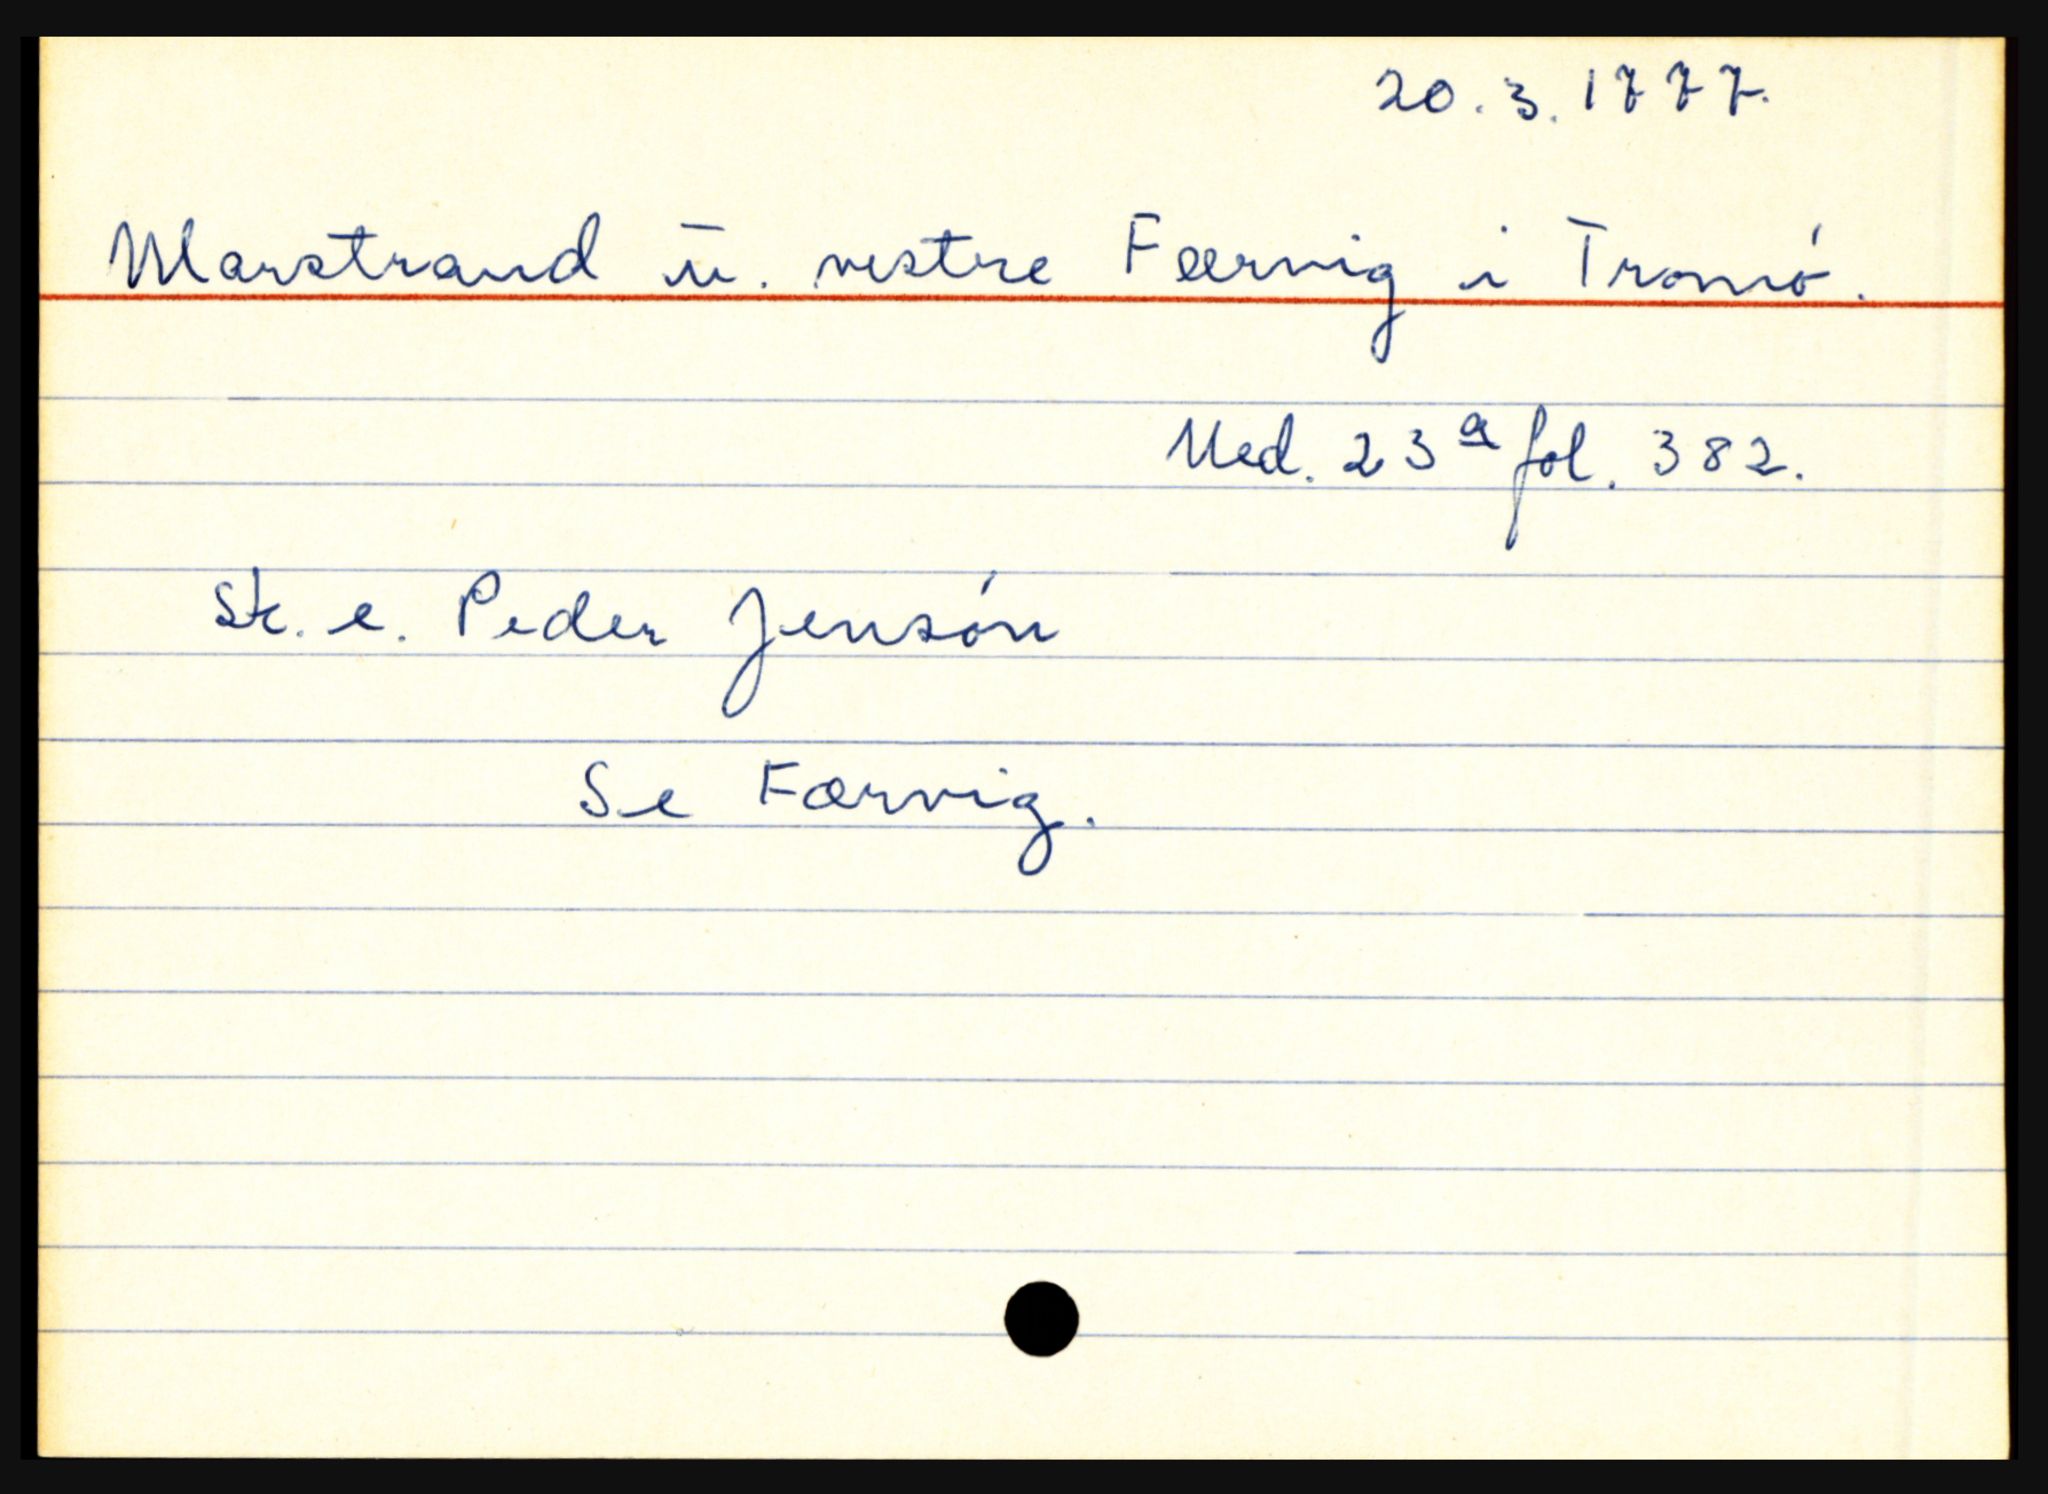 20.3.1777.
Marstrand u. vestre Færvig i Tromó.
Ned. 23ª fol. 382.
Sk. e. Peder Jensón
Se Færvig.